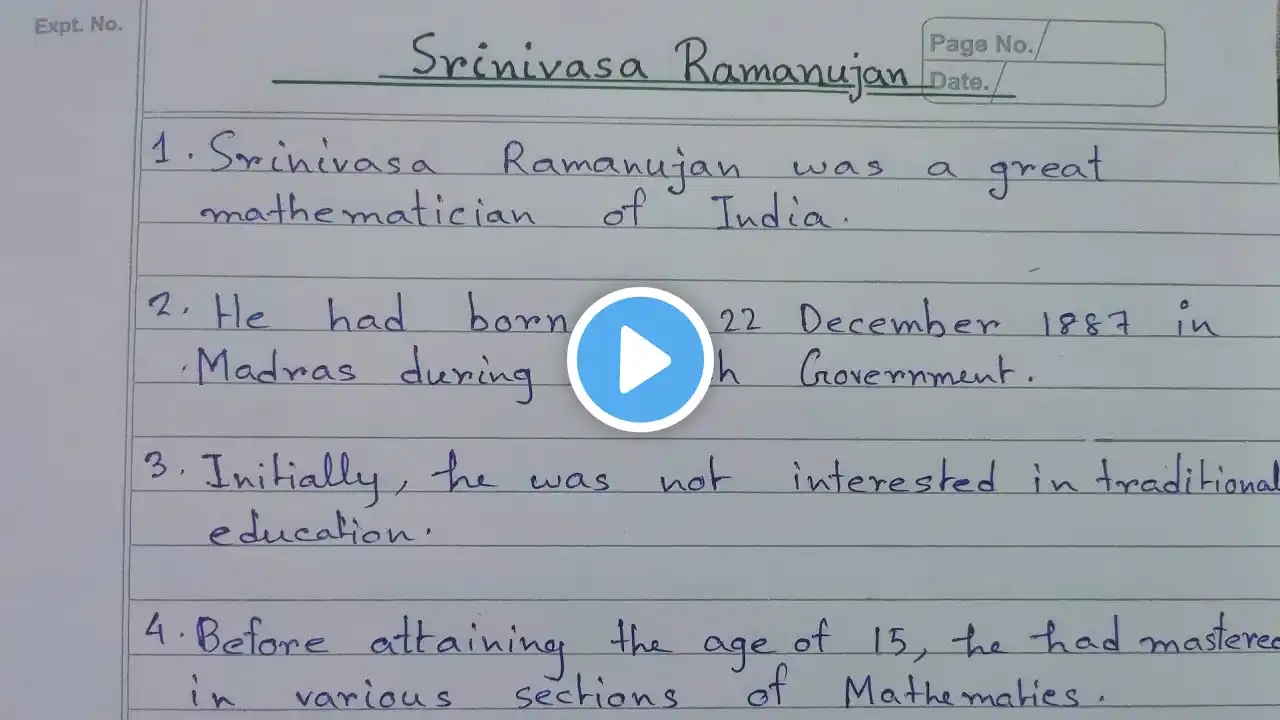 Expt. No.
Page No.
Date.
Srinivasa Ramanujan
1. Srinivasa Ramanujan was a great
mathematician of India.
2. He had born 22 December 1887 in
Madras during Government.
3. Initially, he was not interested in traditional
education.
4. Before attaining the age of 15, he had mastered
in various sections of Mathematics.